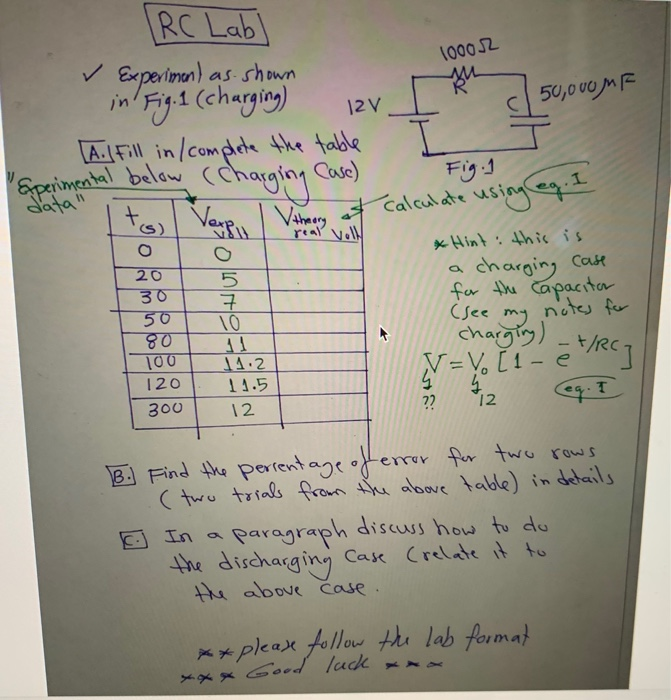 RC Lab
✓ Experiment as shown
in Fig.1 (charging)
1000Ω
R
12V
C
50,000 μF
Fig.1
A. Fill in/complete the table
below (Charging Case)
"Experimental
data"
Calculate using eq. I
t(s) Vexp volt Vtheory real Volt
0 0
20 5
30 7
50 10
80 11
100 11.2
120 11.5
300 12
* Hint: this is
a charging case
for the capacitor
(see my notes for
charging)
V = V₀ [1 - e^-t/RC]
?? 12
eq. I
B. Find the percentage of error for two rows
(two trials from the above table) in details
C. In a paragraph discuss how to do
the discharging case (relate it to
the above case.
** please follow the lab format
*** Good luck ***